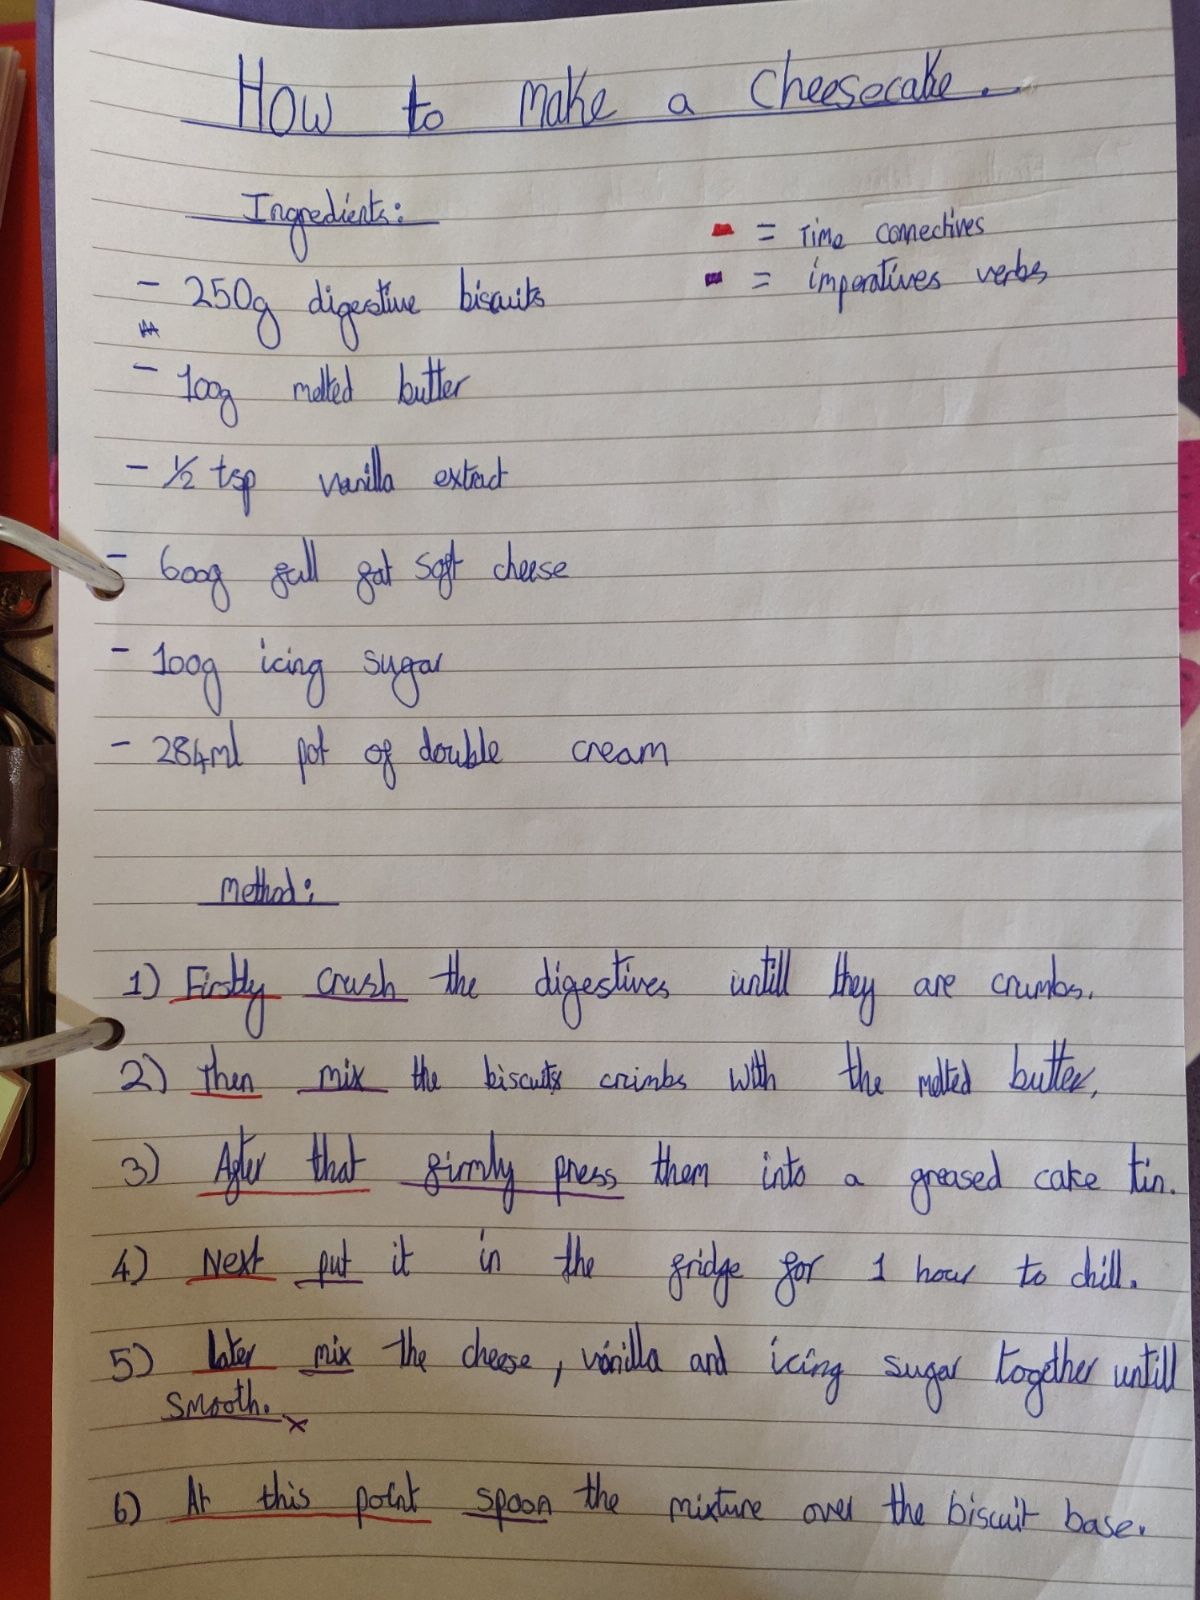 How to make a cheesecake.
Ingredients:
= Time connectives
- 250g digestive biscuits
= imperatives verbs
- 100g melted butter
- ½ tsp vanilla extract
- 600g full fat soft cheese
- 100g icing sugar
- 284ml pot of double cream
Method:
1) Firstly crush the digestives untill they are crumbs.
2) Then mix the biscuits crimbs with the melted butter,
3) After that firmly press them into a greased cake tin.
4) Next put it in the fridge for 1 hour to chill.
5) Later mix the cheese, vanilla and icing sugar together untill
smooth. x
6) At this point spoon the mixture over the biscuit base.